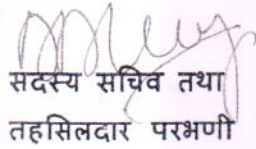 सदस्य सचिव तथा
तहसिलदार परभणी